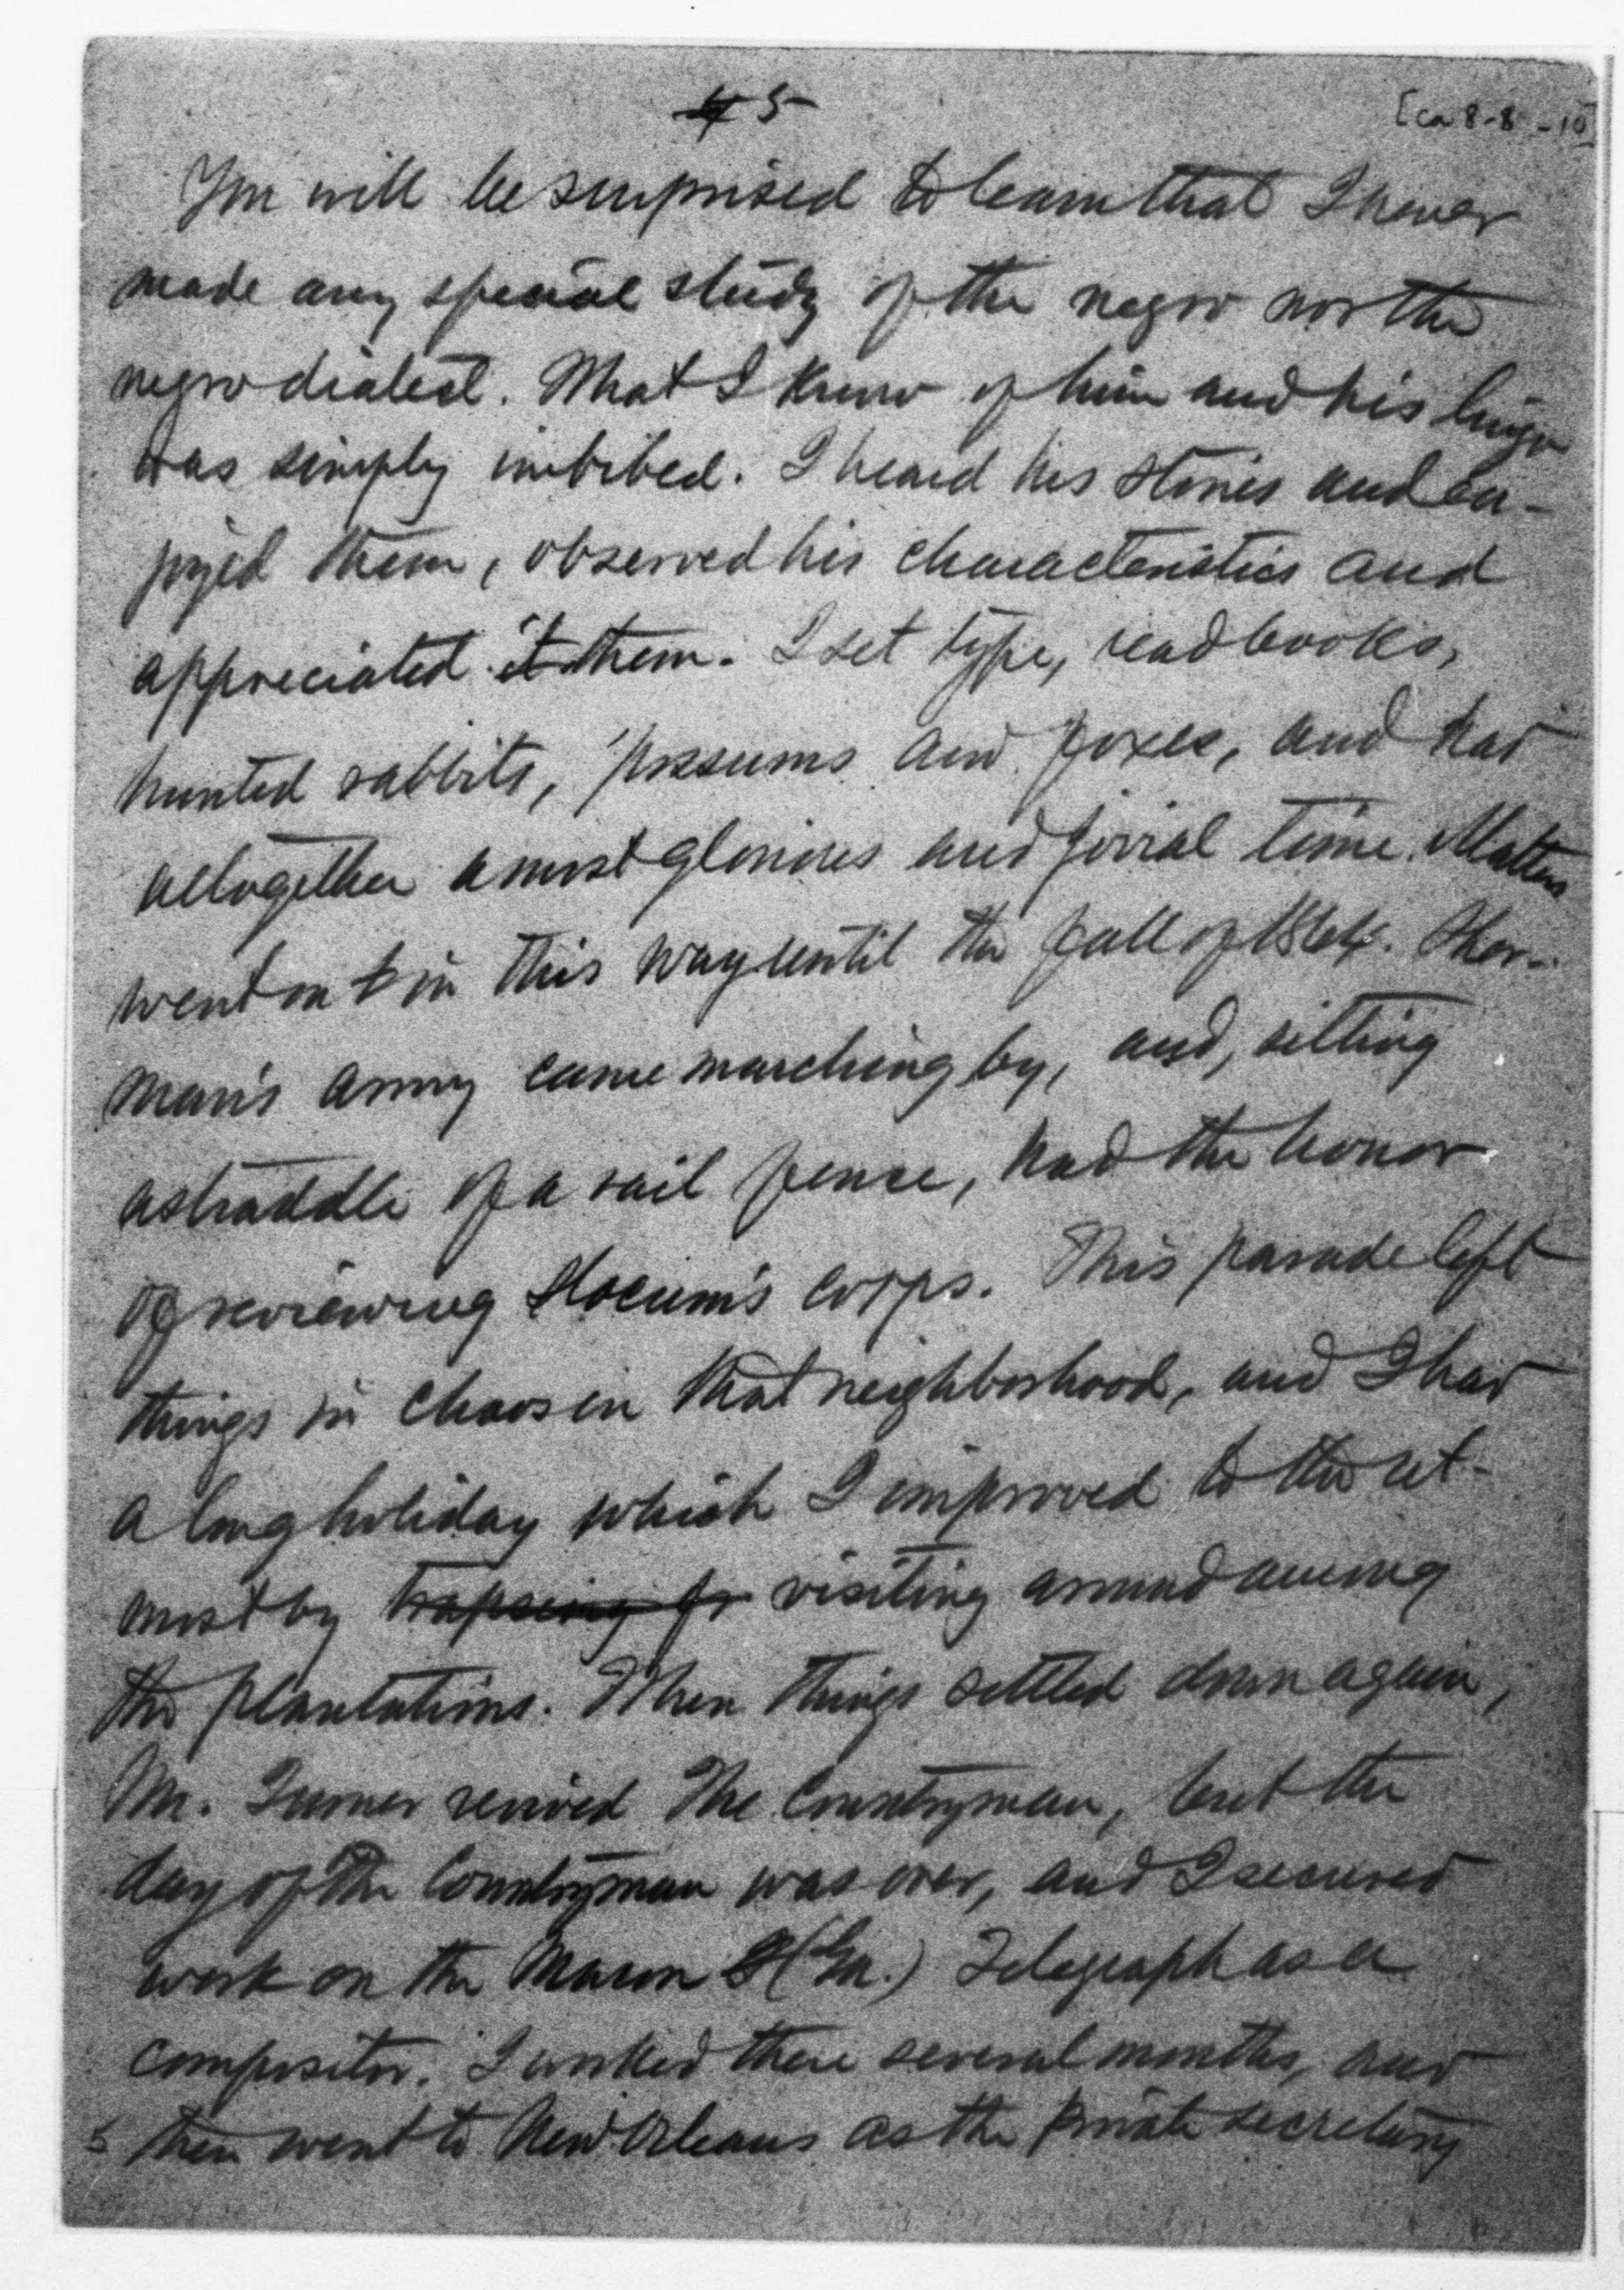 4 5
[ca 8-8-10]
You will be surprised to learn that I never
made any special study of the negro nor the
negro dialect. What I know of him and his lingo
was simply imbibed. I heard his stories and en-
joyed them, observed his characteristics and
appreciated it them. I set type, read books,
hunted rabbits, 'possums and foxes, and had
altogether a most glorious and jovial time. Matters
went on t in this way until the fall of 1864. Sher-
man's army came marching by, and, sitting
astraddle of a rail fence, had the honor
of reviewing Slocum's corps. This parade left
things in chaos in that neighborhood, and I had
a long holiday which I improved to the ut-
most by trapsing fr visiting around among
the plantations. When things settled down again,
Mr. Turner revived The Countryman, but the
day of The Countryman was over, and I secured
work on the Macon (Ga.) Telegraph as a
compositor. I worked there several months, and
5 then went to New Orleans as the private secretary